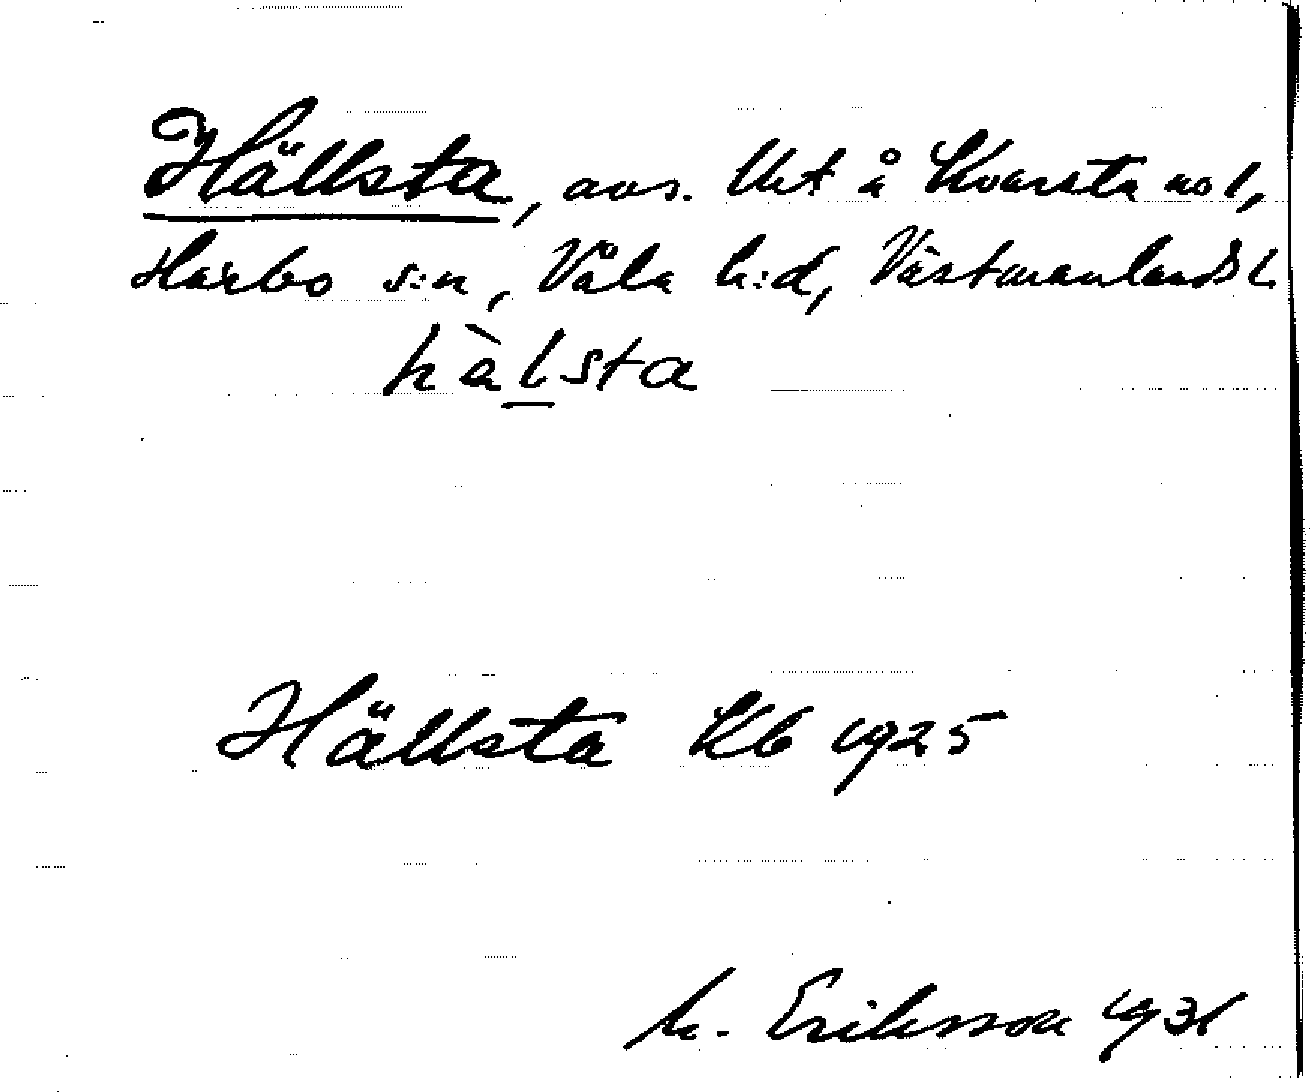 Hällsta, avs. Utt å Kvarsta no 1,
Harbo s:n, Våla h:d, Västmanlands l.
hàlsta
Hällsta Kb 1925
M. Eriksson 1931